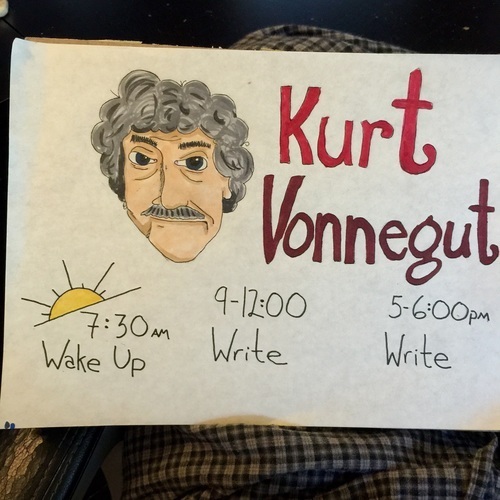 Kurt
Vonnegut
7:30AM
Wake Up
9-12:00
Write
5-6:00pm
Write